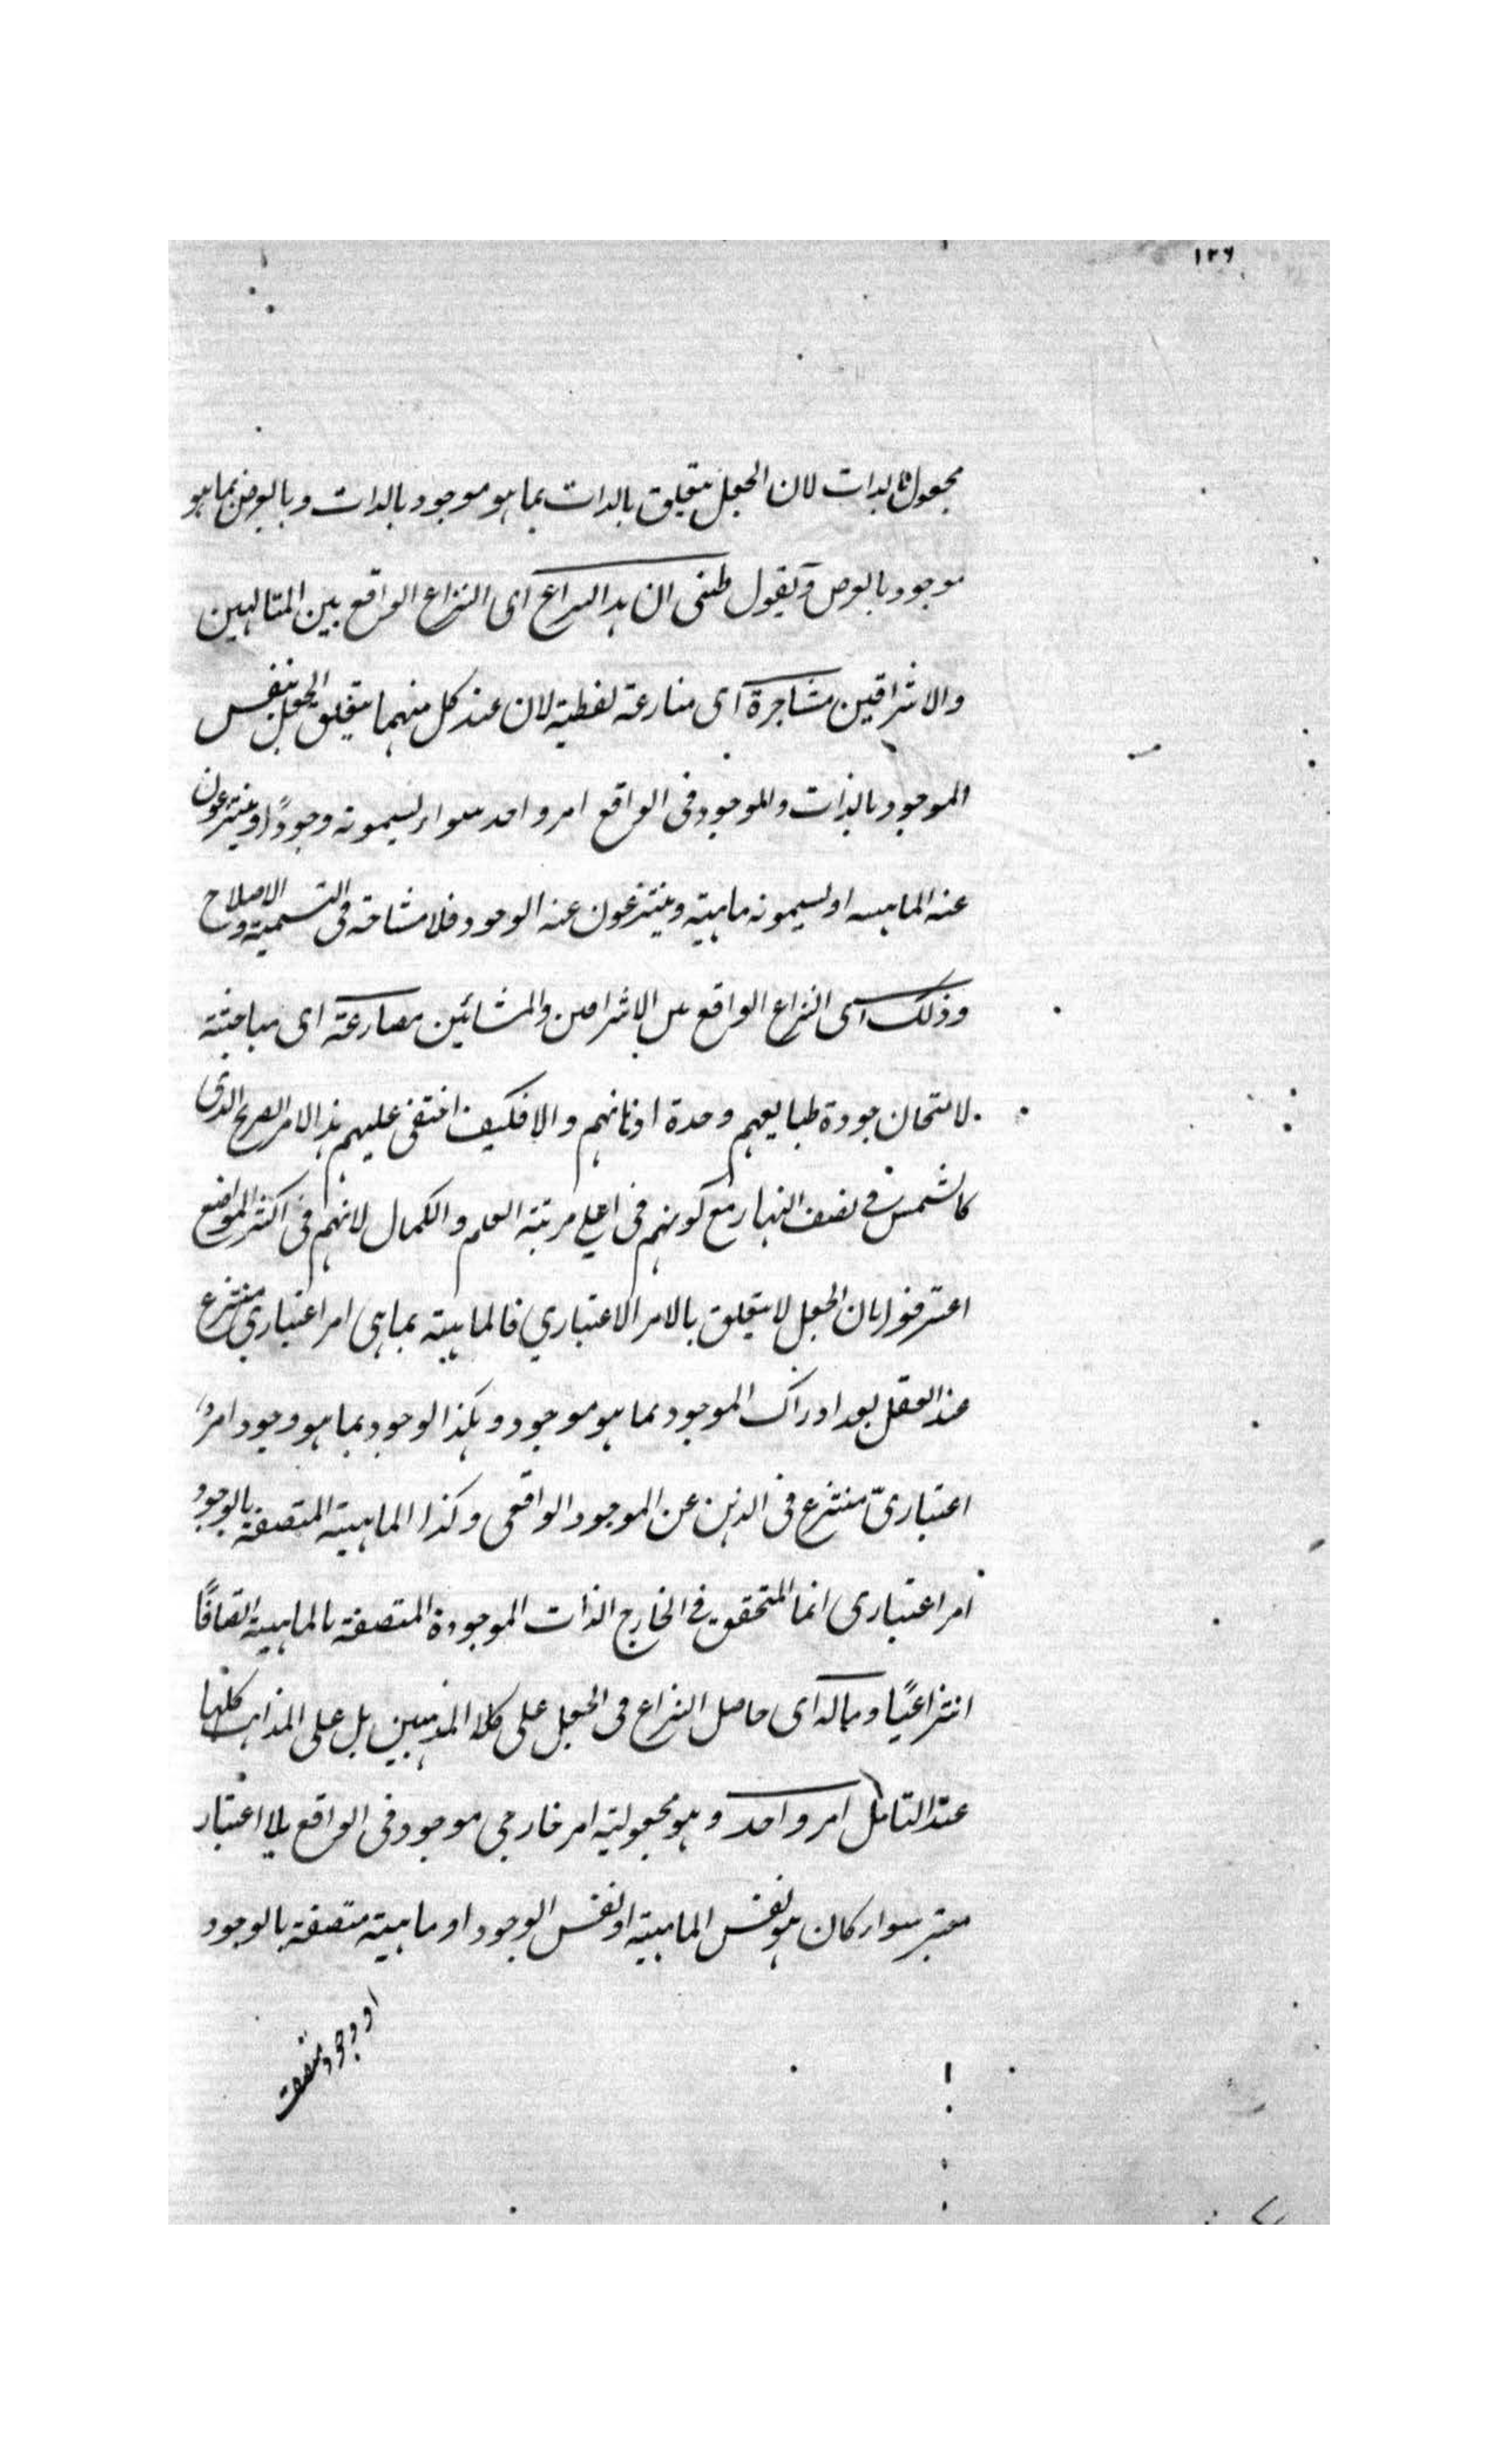 ١٢٦
مجعول بالذات لان الجعل يتعلق بالذات بما هو موجود بالذات وبالعرض بما هو
موجود بالعرض ويقول ظنى ان هذا النزاع اى النزاع الواقع بين المتالهين
والاشراقين مشاجرة اى منازعة لفظية لان عند كل منهما يتعلق الجعل بنفس
الموجود بالذات والموجود فى الواقع امر واحد سواء يسمونه وجودًا وينتزعون
عنه الماهية او يسمونه ماهية وينتزعون عنه الوجود فلا مشاحة فى التسمية والاصلاح
وذلك اى النزاع الواقع بين الاشراقين والمشائين مصارعة اى مباحثة
لامتحان جودة طبايعهم وحدة اذهانهم والا فكيف اختفى عليهم هذا الامر الصريح الذى
كالشمس فى نصف النهار مع كونهم فى اعلى مرتبة العلم والكمال لانهم فى اكثر المواضع
اعترفوا بان الجعل لا يتعلق بالامر الاعتباري فالماهية بما هى امر اعتباري منتزع
عند العقل بعد ادراك الموجود بما هو موجود وهكذا الوجود بما هو وجود امر
اعتبارىّ منتزع فى الذهن عن الموجود الواقعى وكذا الماهية المتصفة بالوجود
امر اعتبارى انما المتحقق فى الخارج الذات الموجودة المتصفة بالماهية اتصافًا
انتزاعيًا وماله اى حاصل النزاع فى الجعل على كلا المذهبين بل على المذاهب كلها
عند التامل امر واحد وهو مجعولية امر خارجى موجود فى الواقع بلا اعتبار
معتبر سواء كان هو نفس الماهية او نفس الوجود او ماهية متصفة بالوجود
او وجود متصف